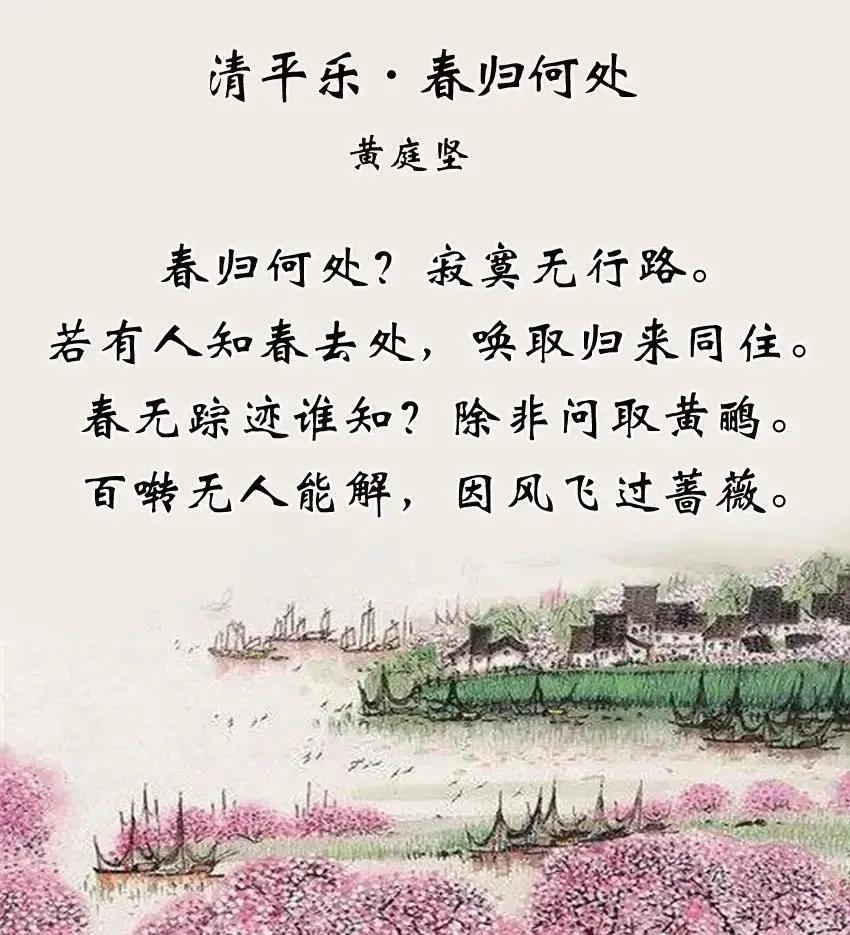 清平乐·春归何处
黄庭坚
春归何处？寂寞无行路。
若有人知春去处，唤取归来同住。
春无踪迹谁知？除非问取黄鹂。
百啭无人能解，因风飞过蔷薇。